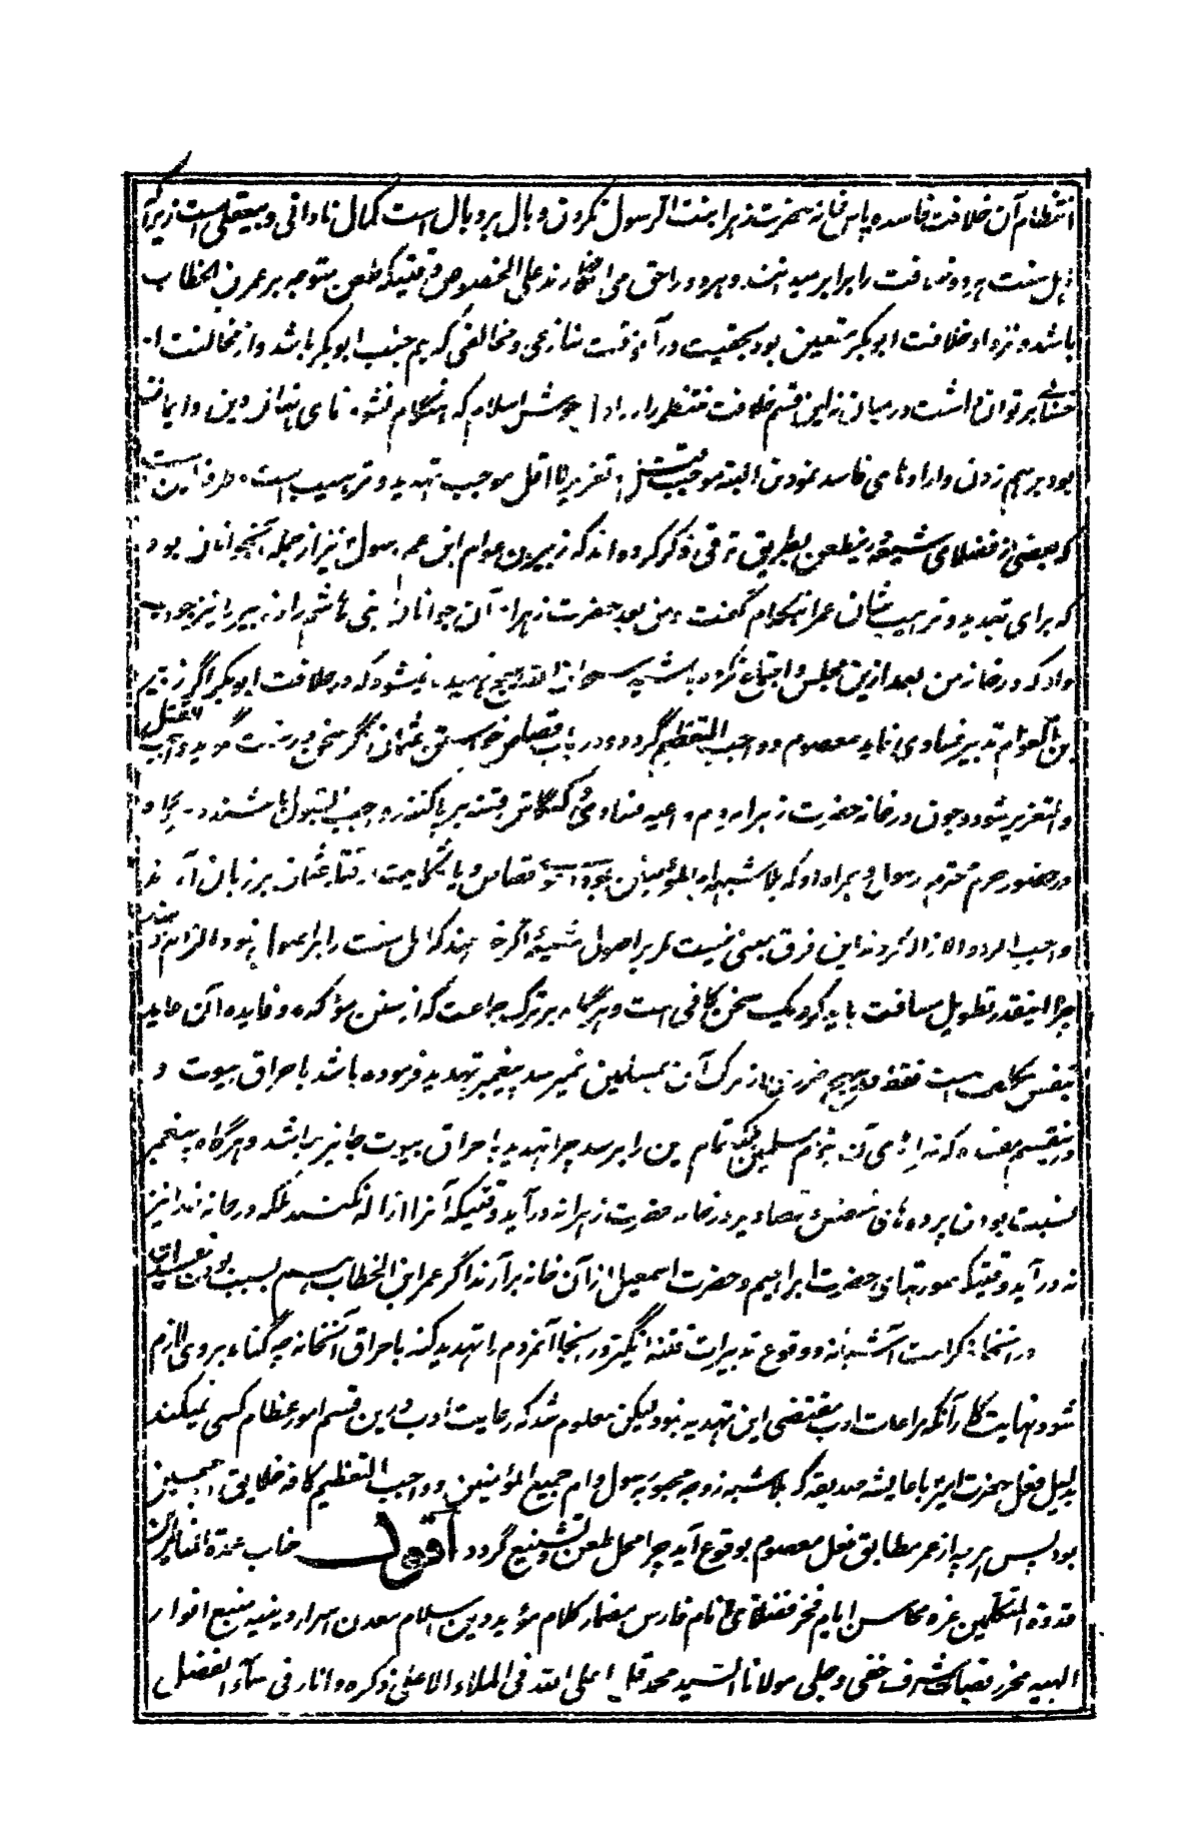 انتظام آن خلافت فاسده پاس خانه حضرت زهرا بنت الرسول نکردن وبال بر وبال است کمال نادانی و بیعقلی است زیرا که
اهل سنت هر دو خلافت را برابر میدانند و هر دو را حق می انگارند علی الخصوص وقتیکه طعن متوجه بر عمر بن الخطاب
باشد و نزد او خلافت ابوبکر متعین بود بحقیت و در آن وقت منازعی و مخالفی که هم جنب ابوبکر باشد و از مخالفت او
حسابی بر توان داشت در میان نه این قسم خلافت منتظمه را در اول جوشش اسلام که هنگام نشو و نمای نهال دین و ایمان
بود برهم زدن و ارادهای فاسد نمودن البته موجب قتل و تعزیر لا اقل موجب تهدید و ترهیب است و طرفه این است
که بعضی از فضلای شیعه در ینطعن بطریق ترقی ذکر کرده اند که زبیر بن عوام ابن عمه رسول نیز از جمله آنجوانان بود
که برای تهدید و ترهیب شان عمر اینکلام گفت و من بعد حضرت زهرا آن جوانان بنی هاشم را و زبیر را نیز جواب
داد که در خانه من بعد ازین مجلس و اجتماع نکرده باشید سبحان الله هیچ فهمیده نمیشود که در خلافت ابوبکر اگر زبیر
بن العوام تدبیر فسادی نماید معصوم و واجب التعظیم گردد و در باب قصاص خواستن عثمان اگر سخن درشت گوید واجب القتل
والتعزیر شود و چون در خانه حضرت زهرا مردم داعیه فساد و کنگاش فتنه برپا کنند واجب القبول باشند و بجا و
در حضور حرم محترم رسول و همراه او که بلا شبهه ام المؤمنین بود دعوی قصاص و یا شکایت از قتله عثمان بر زبان آرند
واجب الرد و الازاله گردند این فرق مبتنی نیست مگر بر اصول شیعه اگر خواهند که اهل سنت را بر اصول خود الزام دهند
چرا اینقدر تطویل مسافت باید کرد یک سخن کافی است و هرگاه بر ترک جماعت که از سنن مؤکده و فایده آن عاید
بنفس مکلف است فقط و هیچ ضرری از ترک آن بمسلمین نمیرسد پیغمبر تهدید فرموده باشد باحراق بیوت و
درینقسم مفسده که شرارهای آن تمام مسلمین بلکه تمام دین را برسد چرا تهدید باحراق بیوت جایز نباشد و هرگاه پیغمبر
بسبب بودن پرده های منقش و تصاویر در خانه حضرت زهرا نه در آید وقتیکه آنرا ازاله نکنند بلکه در خانه خدا نیز
نه در آید وقتیکه صورتهای حضرت ابراهیم و حضرت اسمعیل از آن خانه بر آرند اگر عمر ابن الخطاب هم بسبب بودن مفسدان
در آنخانه کرامت آشیانه و وقوع تدبیرات فتنه انگیز در اینجا آنمردم را تهدید کند باحراق آنخانه چه گناه بر وی لازم
شود نهایت کار آنکه مراعات ادب مقتضی این تهدید نبود لیکن معلوم شد که رعایت ادب در این قسم امور عظام کسی نمیکند
بدلیل فعل حضرت امیر با عایشه صدیقه که بلا شبهه زوجه محبوبه رسول و ام جمیع المؤمنین و واجب التعظیم کافه خلایق اجمعین
بود پس هر چه از عمر مطابق فعل معصوم بوقوع آید چرا محل طعن و تشنیع گردد اقول جناب عمدة المفاخرین
قدوة المتکلمین غره محاسن ایام فخر فضلای انام فارس مضمار کلام مؤید دین اسلام معدن اسرار دینیه منبع انوار
الهیه محرز قصبات شرف خفی و جلی مولانا السید محمد قلی اعلی الله فی الملاء الاعلی ذکره و انار فی سماء الفضل